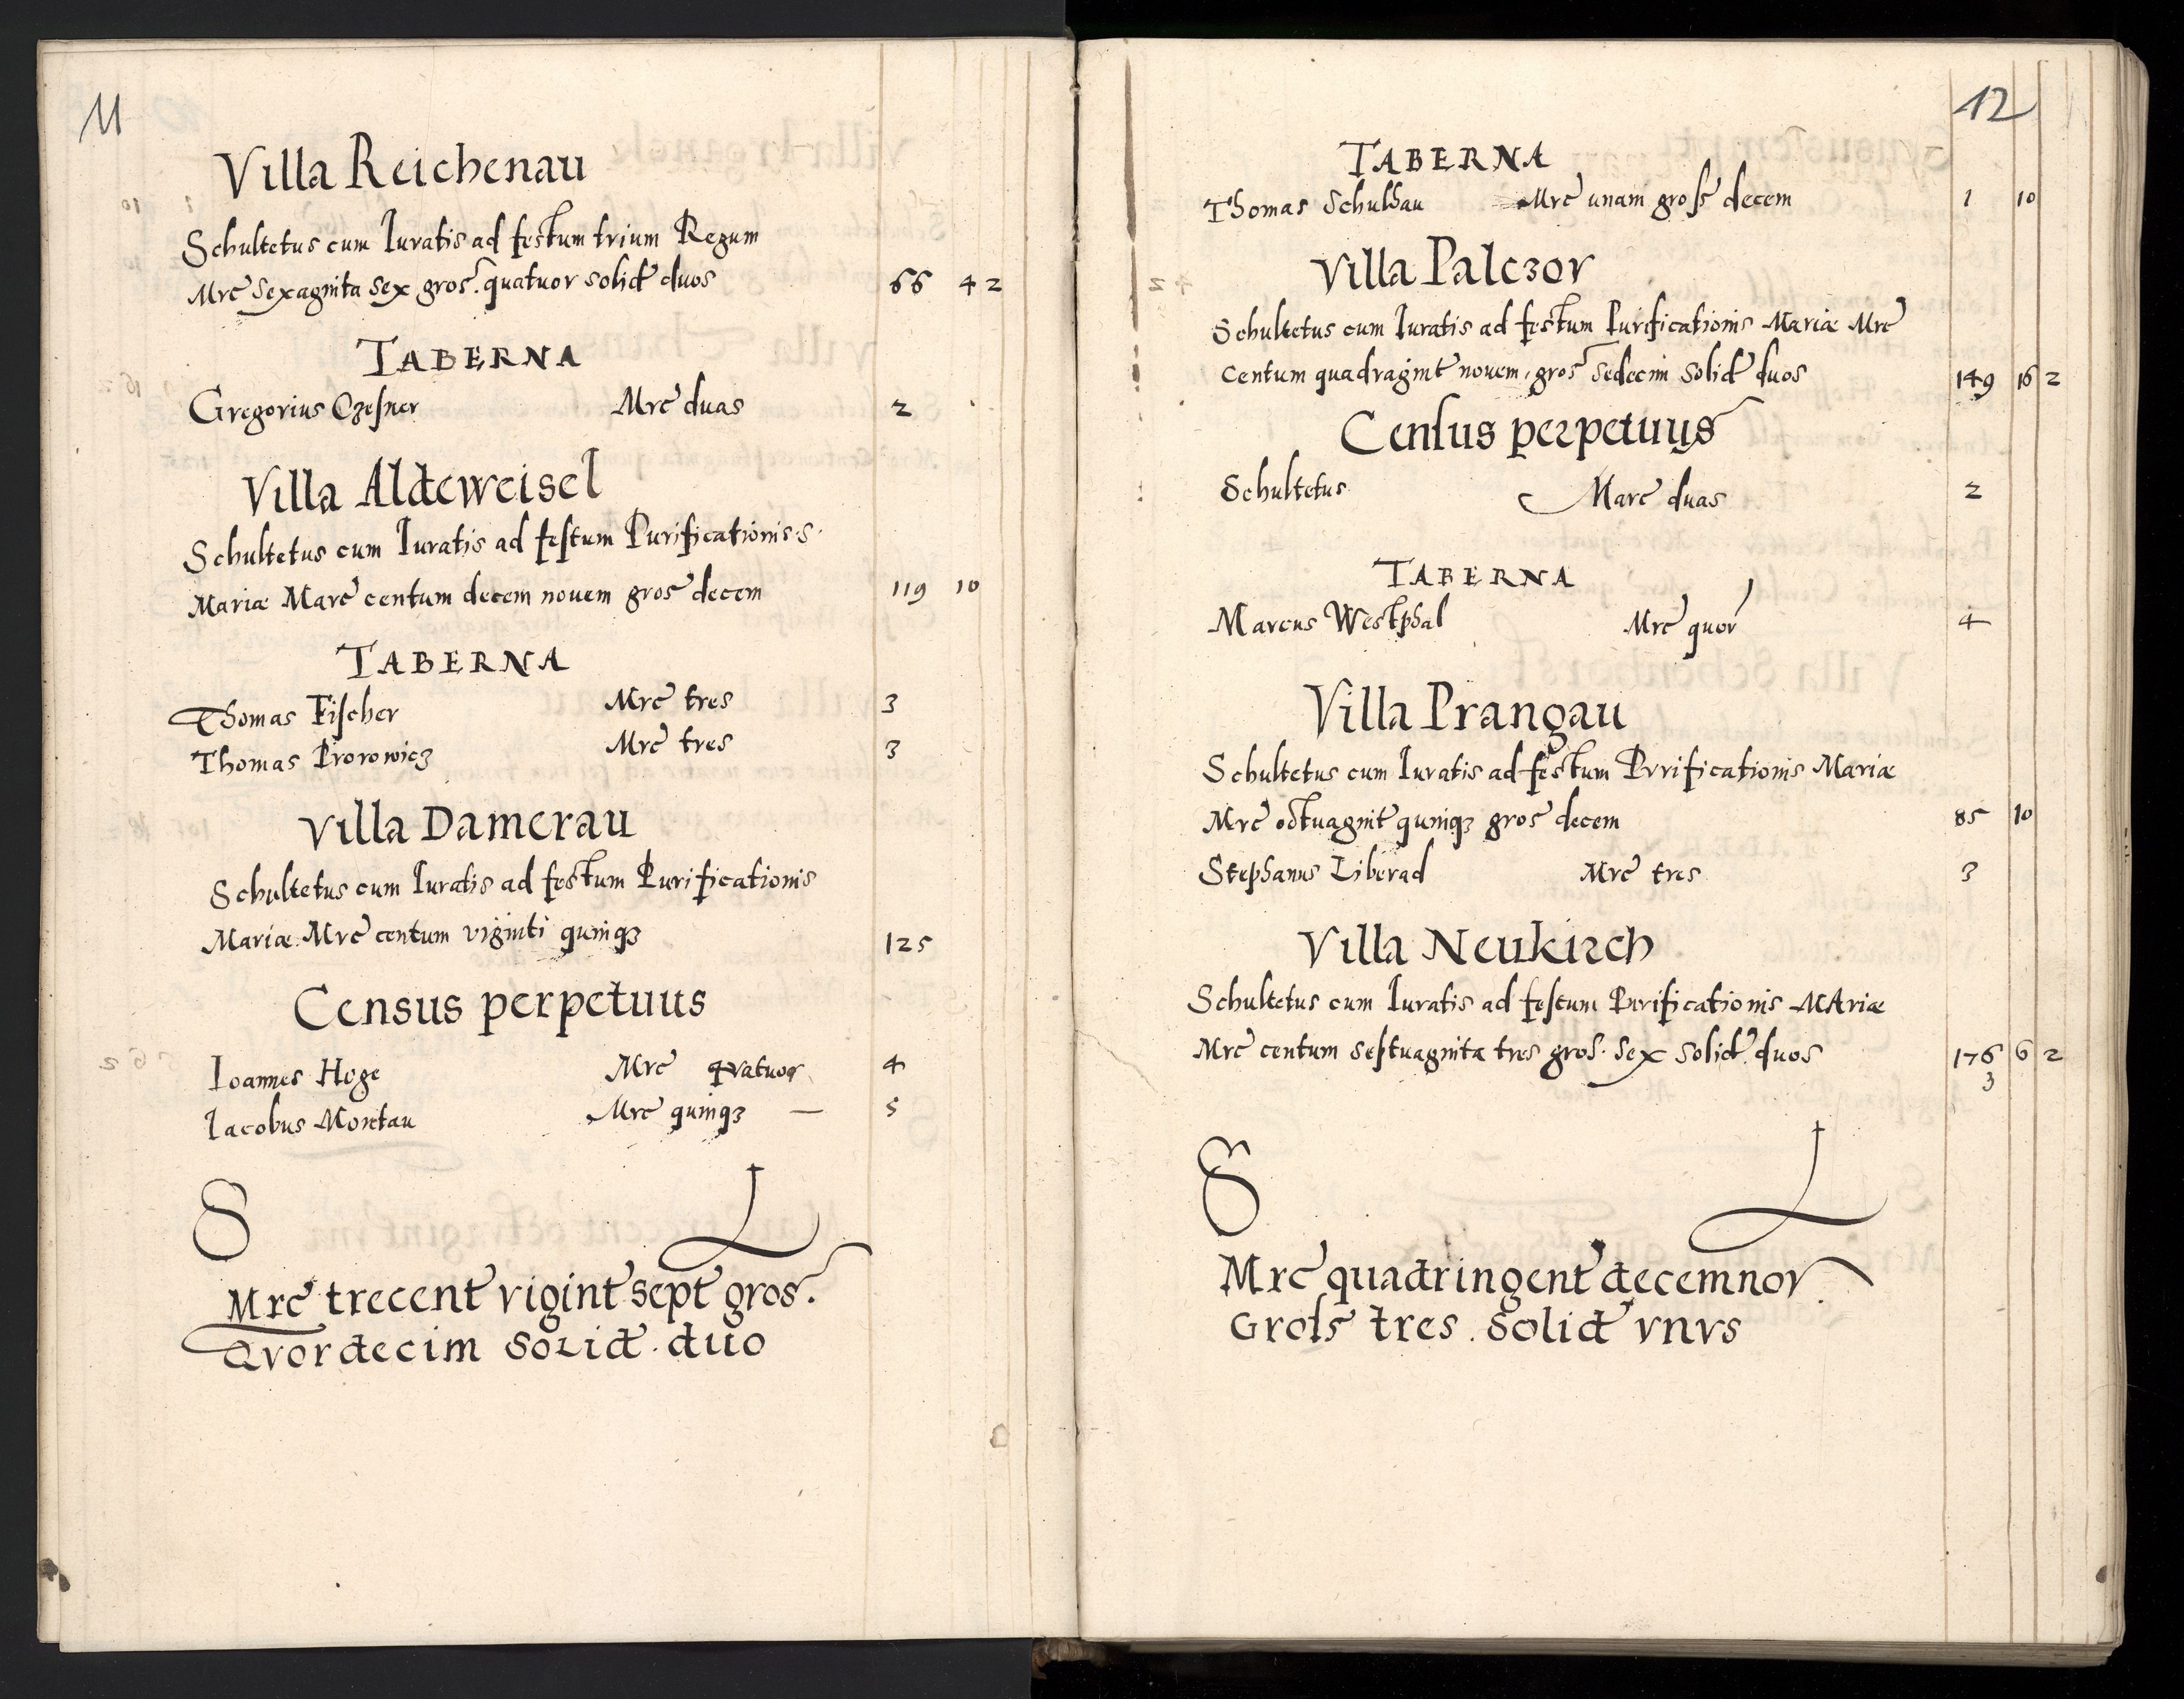 11
Villa Reichenau
Schultetus cum Iuratis ad festum trium Regum
Mrc sexaginta sex gros. quatuor solid duos 66 4 2
TABERNA
Gregorius Czesner Mrc duas 2
Villa Aldeweisel
Schultetus cum Iuratis ad festum Purificationis S.
Mariæ Marc centum decem nouem gros decem 119 10
TABERNA
Thomas Fischer Mrc tres 3
Thomas Prorowicz Mrc tres 3
Villa Damerau
Schultetus cum Iuratis ad festum Purificationis
Mariæ Mrc centum viginti quinqz 125
Census perpetuus
Ioannes Hoge Mrc qvatuor 4
Iacobus Montau Mrc quinqz — 5
S L
Mrc trecent vigint sept gros.
Qvordecim solid. duo
12
TABERNA
Thomas Schulhau Mrc unam gross decem 1 10
Villa Palczor
Schultetus cum Iuratis ad festum Purificationis Mariæ Mrc
centum quadragint nouem, gros sedecim solid duos 149 16 2
Census perpetuus
Schultetus Marc duas 2
TABERNA
Marcus Westphal Mrc quor 4
Villa Prangau
Schultetus cum Iuratis ad festum Pvrificationis Mariæ
Mrc octuagint quinqz gros decem 85 10
Stephanus Liberad Mrc tres 3
Villa Neukirch
Schultetus cum Iuratis ad festum Purificationis MAriæ
Mrc centum septuaginta tres gros. sex solid. duos 176 6 2
3
S L
Mrc quadringent decemnov
Gross tres. solid vnvs